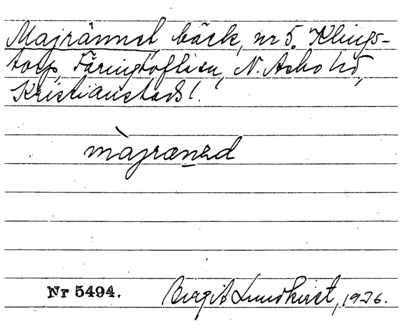 Majrännet, bäck, nr 5. Klings-
torp, Färingtoftsn, N. Åsbo hd,
Kristianstads l.
màjraned
Nr 5494.
Birgit Lundkvist, 1926.